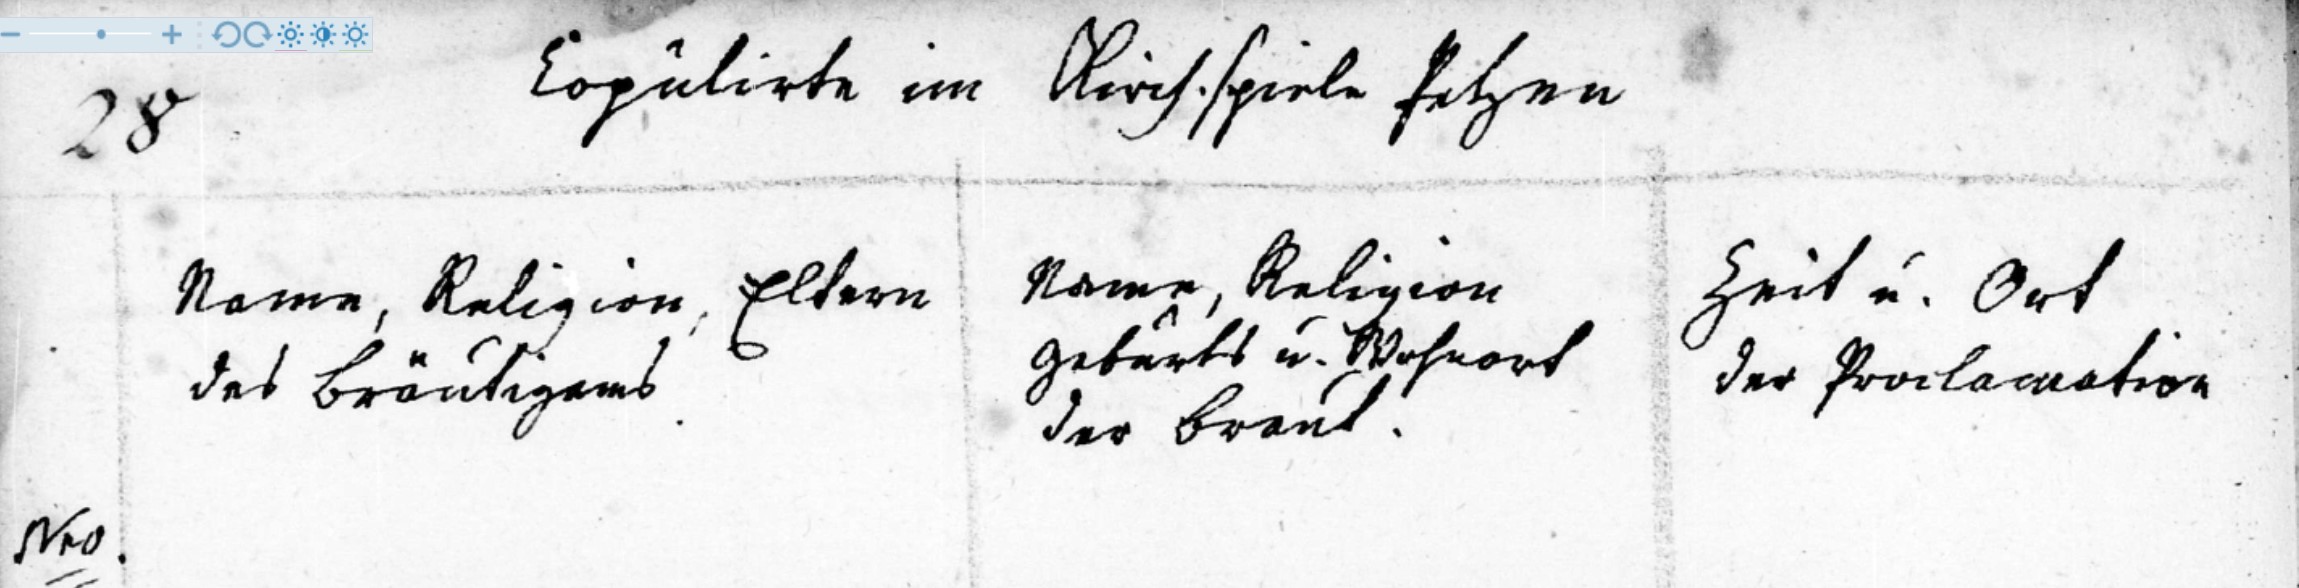 28
Copulirte im Kirch.spiele Petzen
Name, Religion, Eltern
des Bräutigams.
Name, Religion
Geburts u. Wohnort
der Braut.
Zeit u. Ort
der Proclamation
Nro.